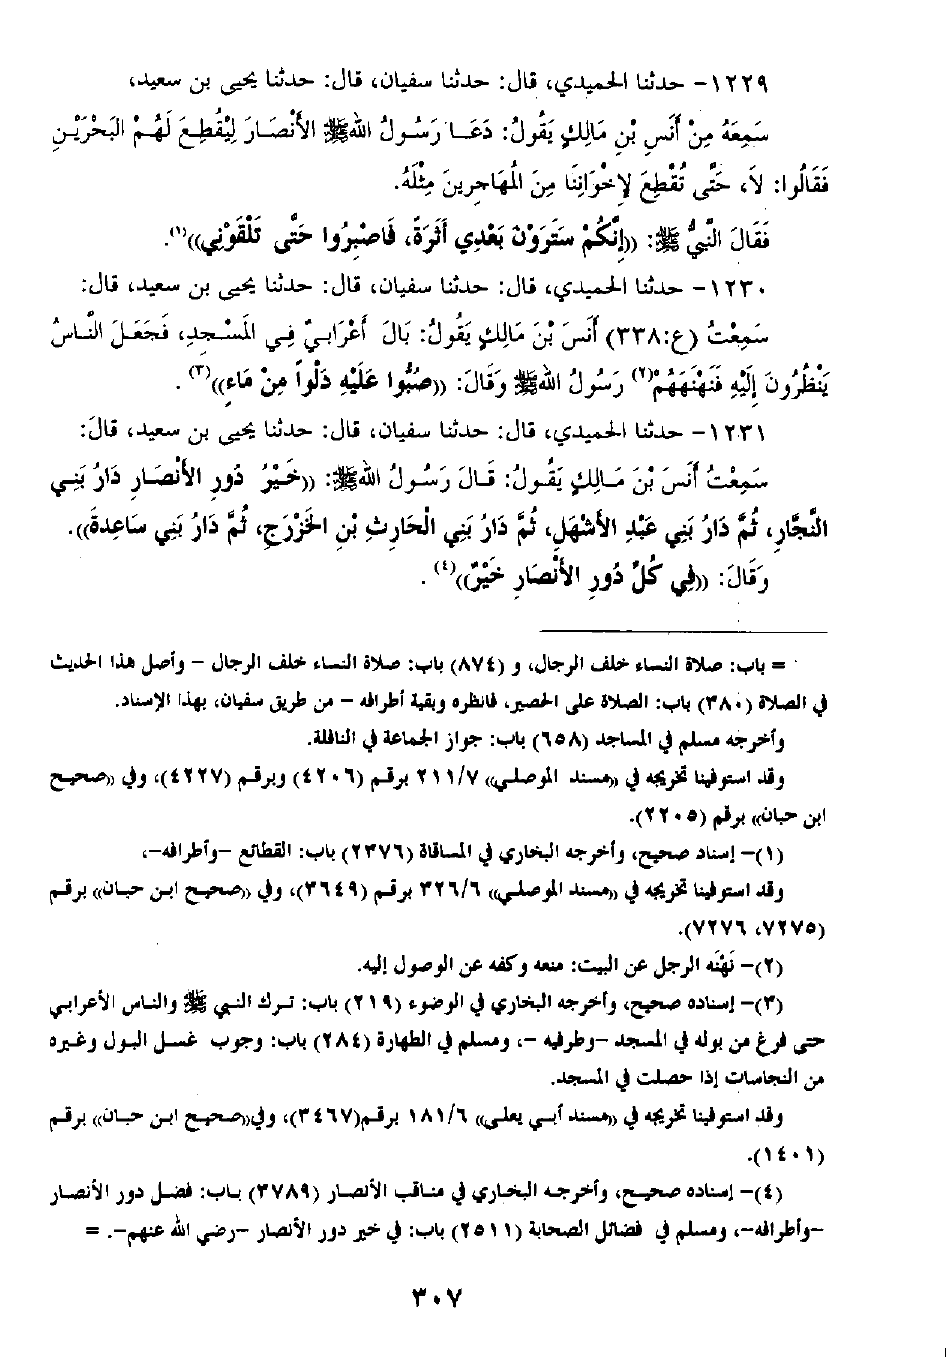 ١٢٢٩- حدثنا الحميدي، قال: حدثنا سفيان، قال: حدثنا يحيى بن سعيد،
سَمِعَهُ مِنْ أَنَسِ بْنِ مَالِكٍ يَقُولُ: دَعَا رَسُولُ اللهِ ﷺ الأَنْصَارَ لِيُقْطِعَ لَهُمْ البَحْرَيْنِ
فَقَالُوا: لاَ، حَتَّى تُقْطِعَ لإِخْوَانِنَا مِنَ المُهَاجرينَ مِثْلَهُ.
فَقَالَ النَّبِيُّ ﷺ: ((إنَّكُمْ سَتَرَوْنَ بَعْدِي أَثَرَةً، فَاصْبِرُوا حَتَّى تَلْقَوْنِي))(١).
١٢٣٠- حدثنا الحميدي، قال: حدثنا سفيان، قال: حدثنا يحيى بن سعيد، قال:
سَمِعْتُ (ع:٣٣٨) أَنَسَ بْنَ مَالِكٍ يَقُولُ: بَالَ أَعْرَابِيٌّ فِي المَسْجِدِ، فَجَعَلَ النَّاسُ
يَنْظُرُونَ إِلَيْهِ فَنَهْنَهَهُمْ(٢) رَسُولُ اللهِ ﷺ وَقَالَ: ((صُبُّوا عَلَيْهِ دَلْواً مِنْ مَاءٍ))(٣) .
١٢٣١- حدثنا الحميدي، قال: حدثنا سفيان، قال: حدثنا يحيى بن سعيد، قالَ:
سَمِعْتُ أَنَسَ بْنَ مَالِكٍ يَقُولُ: قَالَ رَسُولُ اللهِ ﷺ: ((خَيْرُ دُورِ الأَنْصَارِ دَارُ بَنِي
النَّجَّارِ، ثُمَّ دَارُ بَنِي عَبْدِ الأَشْهَلِ، ثُمَّ دَارُ بَنِي الْحَارِثِ بْنِ الخَزْرَجِ، ثُمَّ دَارُ بَنِي سَاعِدةَ)).
وَقَالَ: ((فِي كُلِّ دُورِ الأَنْصَارِ خَيْرٌ))(٤) .
= باب: صلاة النساء خلف الرجال، و (٨٧٤) باب: صلاة النساء خلف الرجال - وأصل هذا الحديث
في الصلاة (٣٨٠) باب: الصلاة على الحصير، فانظره وبقية أطرافه - من طريق سفيان، بهذا الإسناد.
وأخرجه مسلم في المساجد (٦٥٨) باب: جواز الجماعة في النافلة.
وقد استوفينا تخريجه في ((مسند الموصلي)) ٢١١/٧ برقم (٤٢٠٦) وبرقم (٤٢٢٧)، وفي ((صحيح
ابن حبان)) برقم (٢٢٠٥).
(١)- إسناد صحيح، وأخرجه البخاري في المساقاة (٢٣٧٦) باب: القطائع -وأطرافه-،
وقد استوفينا تخريجه في ((مسند الموصلي)) ٣٢٦/٦ برقم (٣٦٤٩)، وفي ((صحيح ابن حبان)) برقم
(٧٢٧٥، ٧٢٧٦).
(٢)- نَهْنَه الرجل عن البيت: منعه وكفه عن الوصول إليه.
(٣)- إسناده صحيح، وأخرجه البخاري في الوضوء (٢١٩) باب: ترك النبي ﷺ والناس الأعرابي
حتى فرغ من بوله في المسجد -وطرفيه -، ومسلم في الطهارة (٢٨٤) باب: وجوب غسل البول وغيره
من النجاسات إذا حصلت في المسجد.
وقد استوفينا تخريجه في ((مسند أبي يعلى)) ١٨١/٦ برقم(٣٤٦٧)، وفي((صحيح ابن حبان)) برقم
(١٤٠١).
(٤)- إسناده صحيح، وأخرجه البخاري في مناقب الأنصار (٣٧٨٩) باب: فضل دور الأنصار
-وأطرافه-، ومسلم في فضائل الصحابة (٢٥١١) باب: في خير دور الأنصار -رضي الله عنهم-. =
٣٠٧